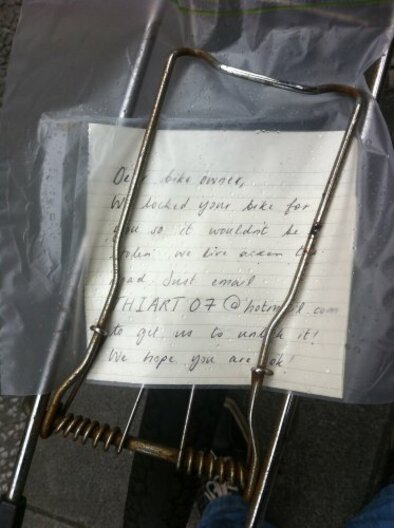 Dear bike owner,
We locked your bike for
you so it wouldn't be
stolen. we live across
road Just email
THIART07@hotmail.com
to get us to unlock it!
We hope you are ok!